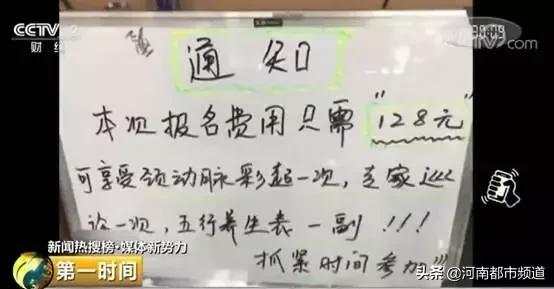 CCTV 2
财经
tv.com
通知
本次报名费用只需"128元"
可享受颈动脉彩超一次,专家巡
论一次,五行养生表一副!!!
抓紧时间参加"
新闻热搜榜·媒体新势力
第一时间
头条@河南都市频道